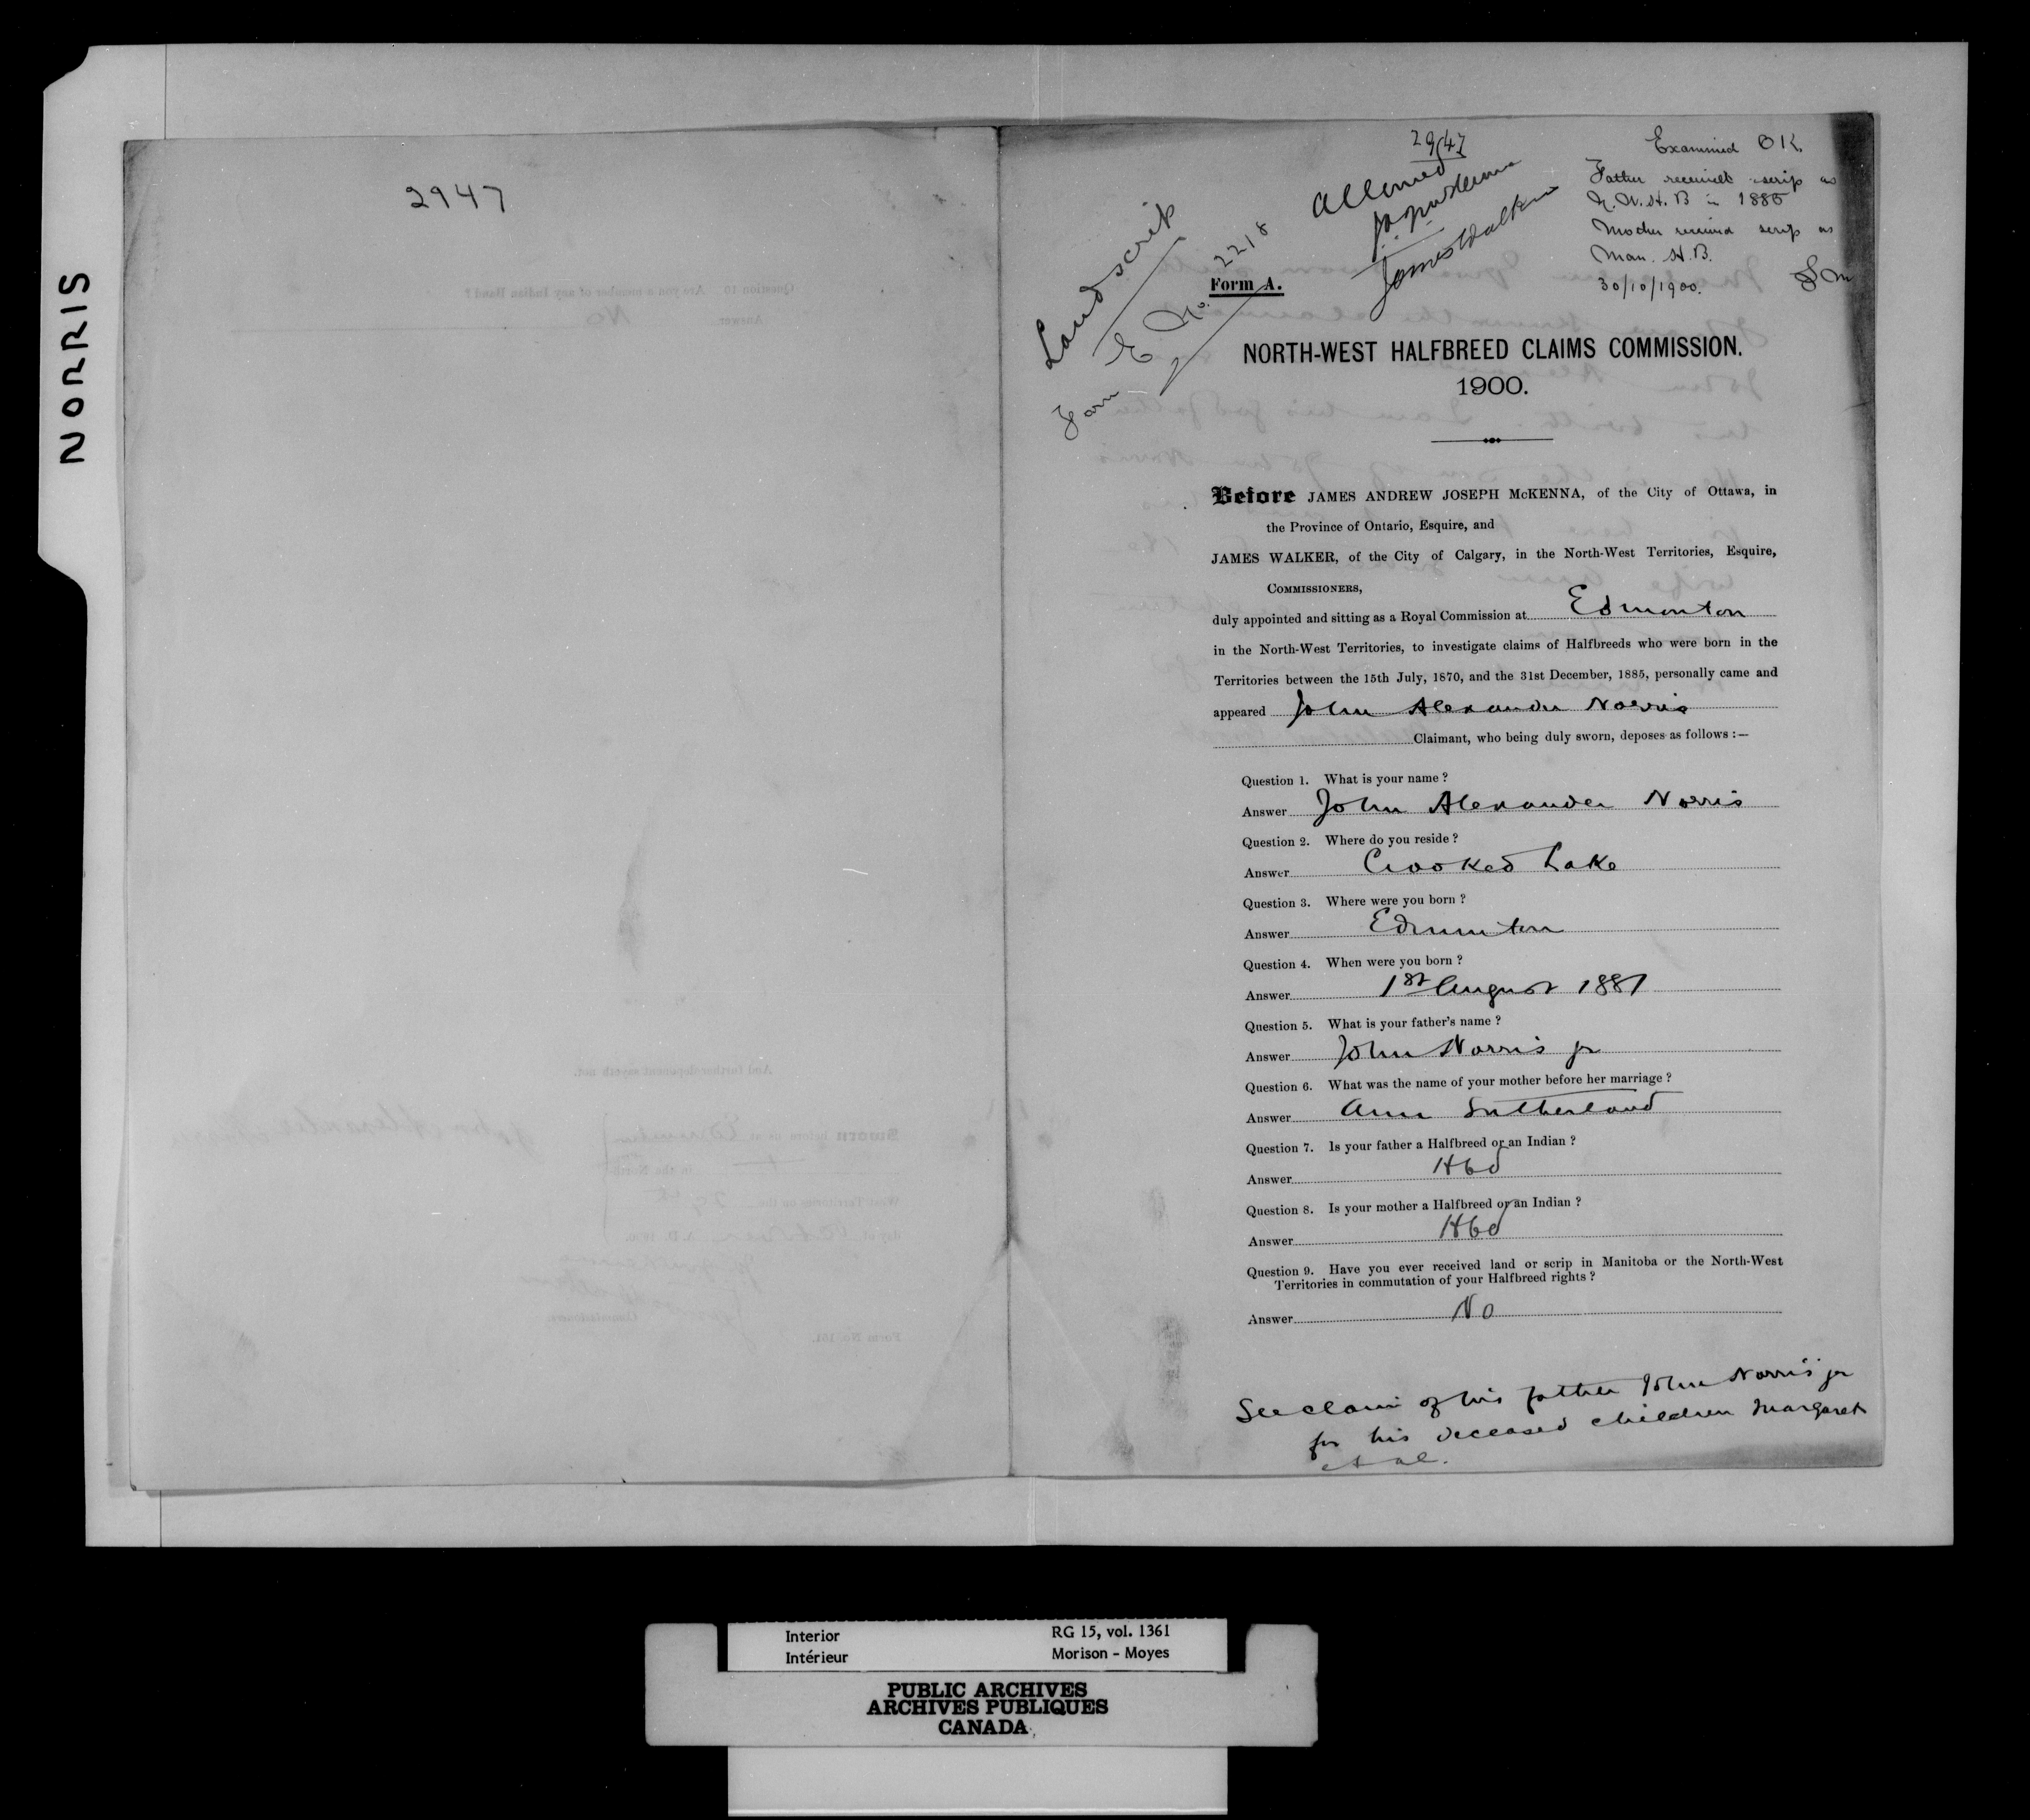 NORRIS
2947
2947
Examined OK.
Allowed
Father received scrip as
N.W.H.B in 1885
JAJ McKenna
James Walker
Mother received scrip as
Man. H.B.
30/10/1900.
Land scrip
Form E No. 2218
Form A.
NORTH-WEST HALFBREED CLAIMS COMMISSION.
1900.
Before JAMES ANDREW JOSEPH McKENNA, of the City of Ottawa, in
the Province of Ontario, Esquire, and
JAMES WALKER, of the City of Calgary, in the North-West Territories, Esquire,
COMMISSIONERS,
duly appointed and sitting as a Royal Commission at Edmonton
in the North-West Territories, to investigate claims of Halfbreeds who were born in the
Territories between the 15th July, 1870, and the 31st December, 1885, personally came and
appeared John Alexander Norris
Claimant, who being duly sworn, deposes as follows :—
Question 1. What is your name ?
Answer John Alexander Norris
Question 2. Where do you reside ?
Answer Crooked Lake
Question 3. Where were you born ?
Answer Edmonton
Question 4. When were you born ?
Answer 1st August 1881
Question 5. What is your father's name ?
Answer John Norris jr
Question 6. What was the name of your mother before her marriage ?
Answer Ann Sutherland
Question 7. Is your father a Halfbreed or an Indian ?
Answer Hbd
Question 8. Is your mother a Halfbreed or an Indian ?
Answer Hbd
Question 9. Have you ever received land or scrip in Manitoba or the North-West
Territories in commutation of your Halfbreed rights ?
Answer No
See claim of his father John Norris jr
for his deceased children Margaret
et al.
Interior
Intérieur
RG 15, vol. 1361
Morison - Moyes
PUBLIC ARCHIVES
ARCHIVES PUBLIQUES
CANADA